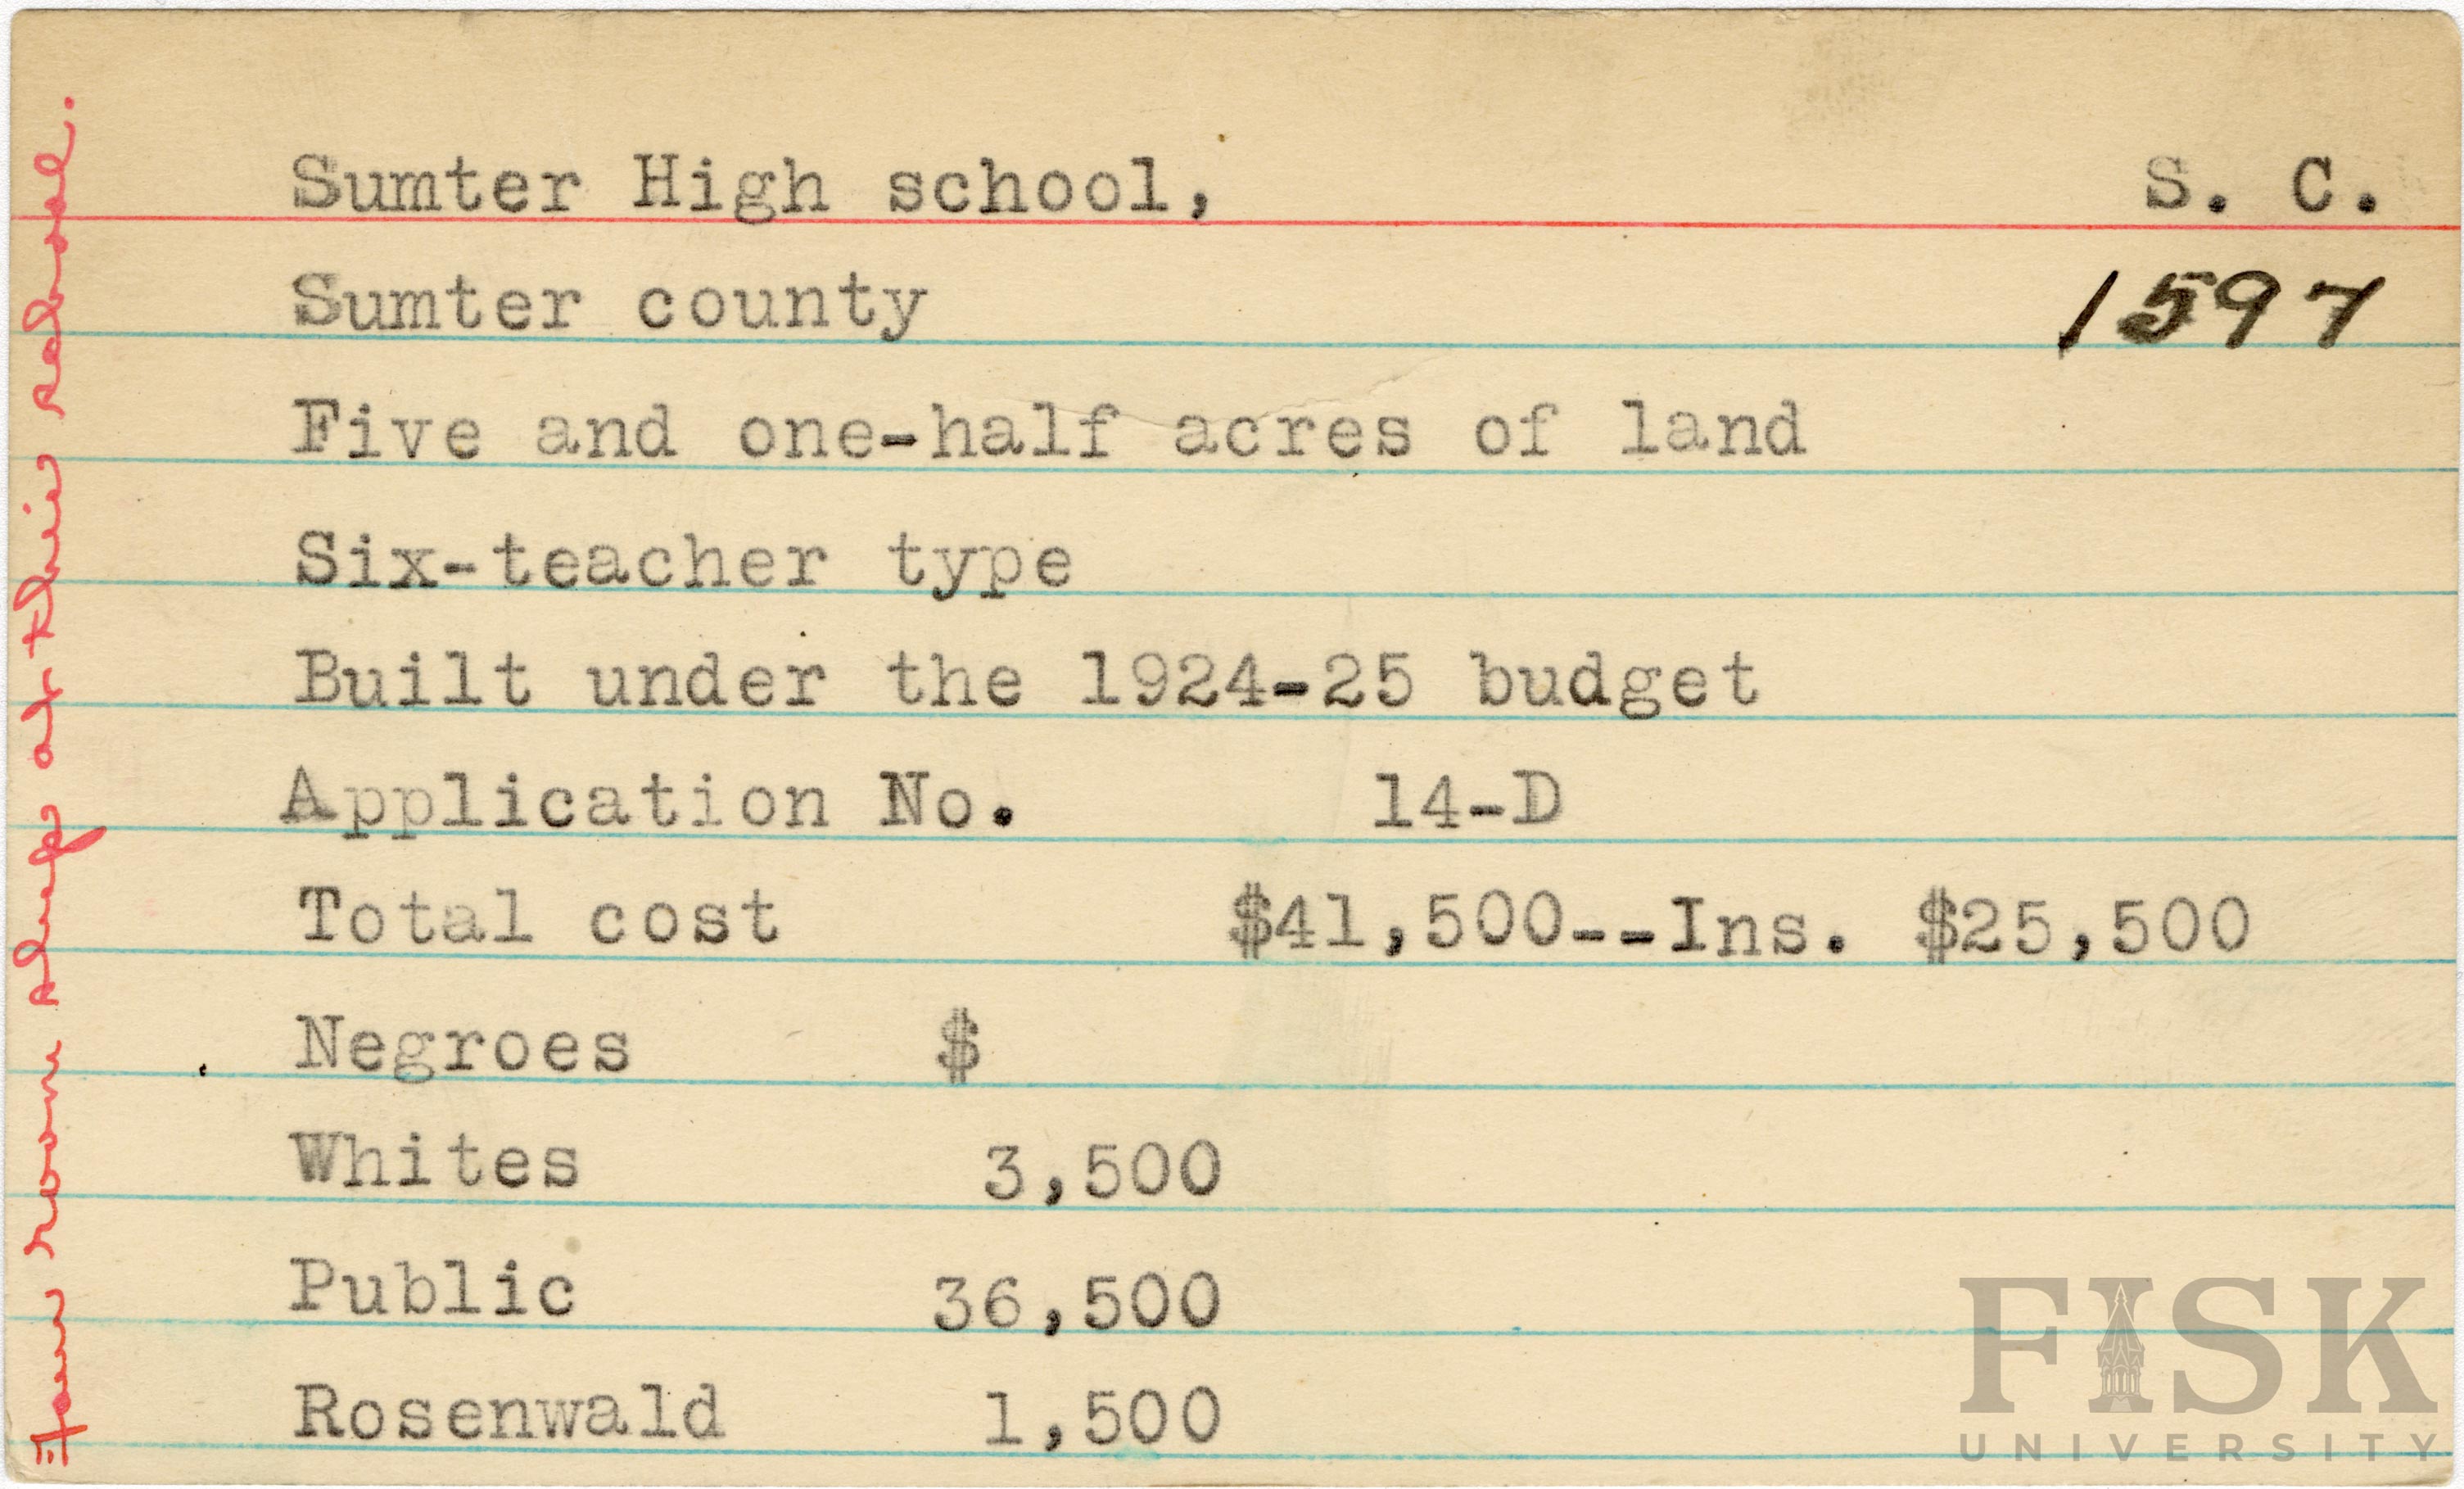 Sumter High school, S. C.
Sumter county 1597
Five and one-half acres of land
Six-teacher type
Built under the 1924-25 budget
Application No. 14-D
Total cost $41,500--Ins. $25,500
Negroes $
Whites 3,500
Public 36,500
Rosenwald 1,500
Four room shop at this school.
FISK
UNIVERSITY